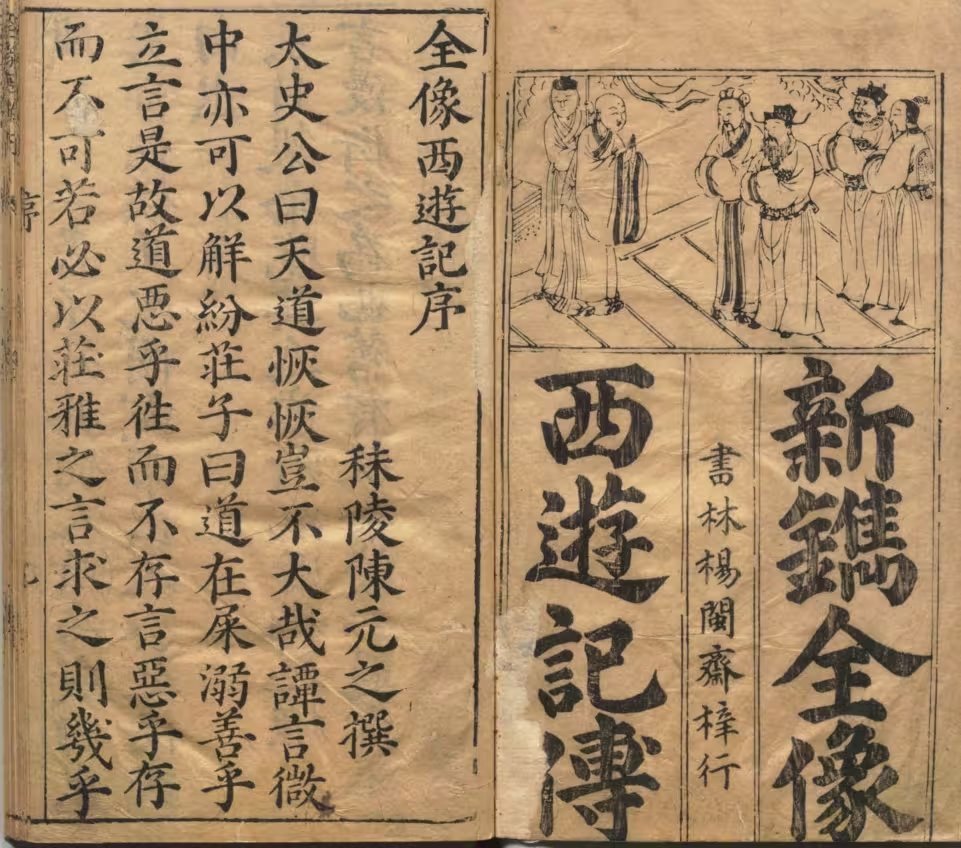 新鐫全像
書林楊閩齋梓行
西遊記傳
全像西遊記序
秣陵陳元之撰
太史公曰天道恢恢豈不大哉譚言微
中亦可以觧紛莊子曰道在屎溺善乎
立言是故道悪乎徃而不存言惡乎存
而不可若必以莊雅之言求之則幾乎